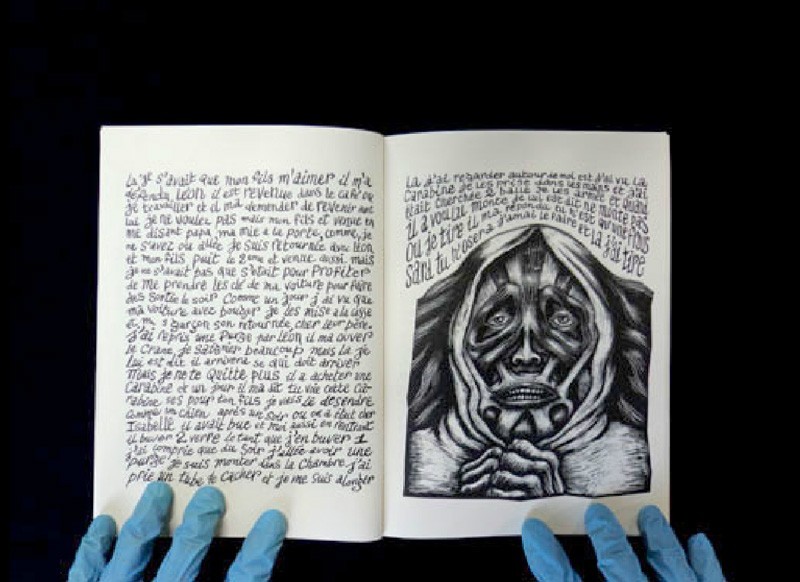 La je s'avait que mon fils m'aimer il m'a
défendu Léon il est revenue dans le café ou
je travailler et il ma demander de revenir avec
lui je ne voulez pas mais mon fils et venue en
me disant papa ma mie a la porte, comme, je
ne s'avez ou allée je suis retournée avec Léon
et mon fils puit le 2eme et venue aussi mais
je ne s'avait pas que s'était pour Profiter
de me prendre les clé de ma voiture pour faire
des sortie le soir Comme un jour j'ai vu que
ma voiture avec bouger je les mise a la
et garçon son retournée, cher leur père.
J'ai repris une Purge par Léon il ma ouver
le Crane, je saigner beaucoup mais la je
lui est dit il arrivera se qui doit arriver
Mais je ne te Quitte plus il a acheter une
Carabine et un jour il ma dit tu voie cette Ca-
rabine ses pour ton fils je vais le desendre
comme un chien après un soir ou on a était cher
Isabelle il avait bue et moi aussi en rentrant
il buver 2 verre le tant que j'en buver 1
j'ai comprie que du soir j'allée avoir une
purge je suis monter dans la chambre j'ai
prie un tube te cacher et je me suis alonger
La j'ai regarder autour de moi est j'ai vu la
Carabine je les prise dans les mains et j'ai
était cherchée 2 balle je les armer et quand
il a voulu monte je lui est dit ne monte pas
ou je tire il ma répondu tu n'est qu'une
tu n'osera j'amai le faire et la j'ai tire